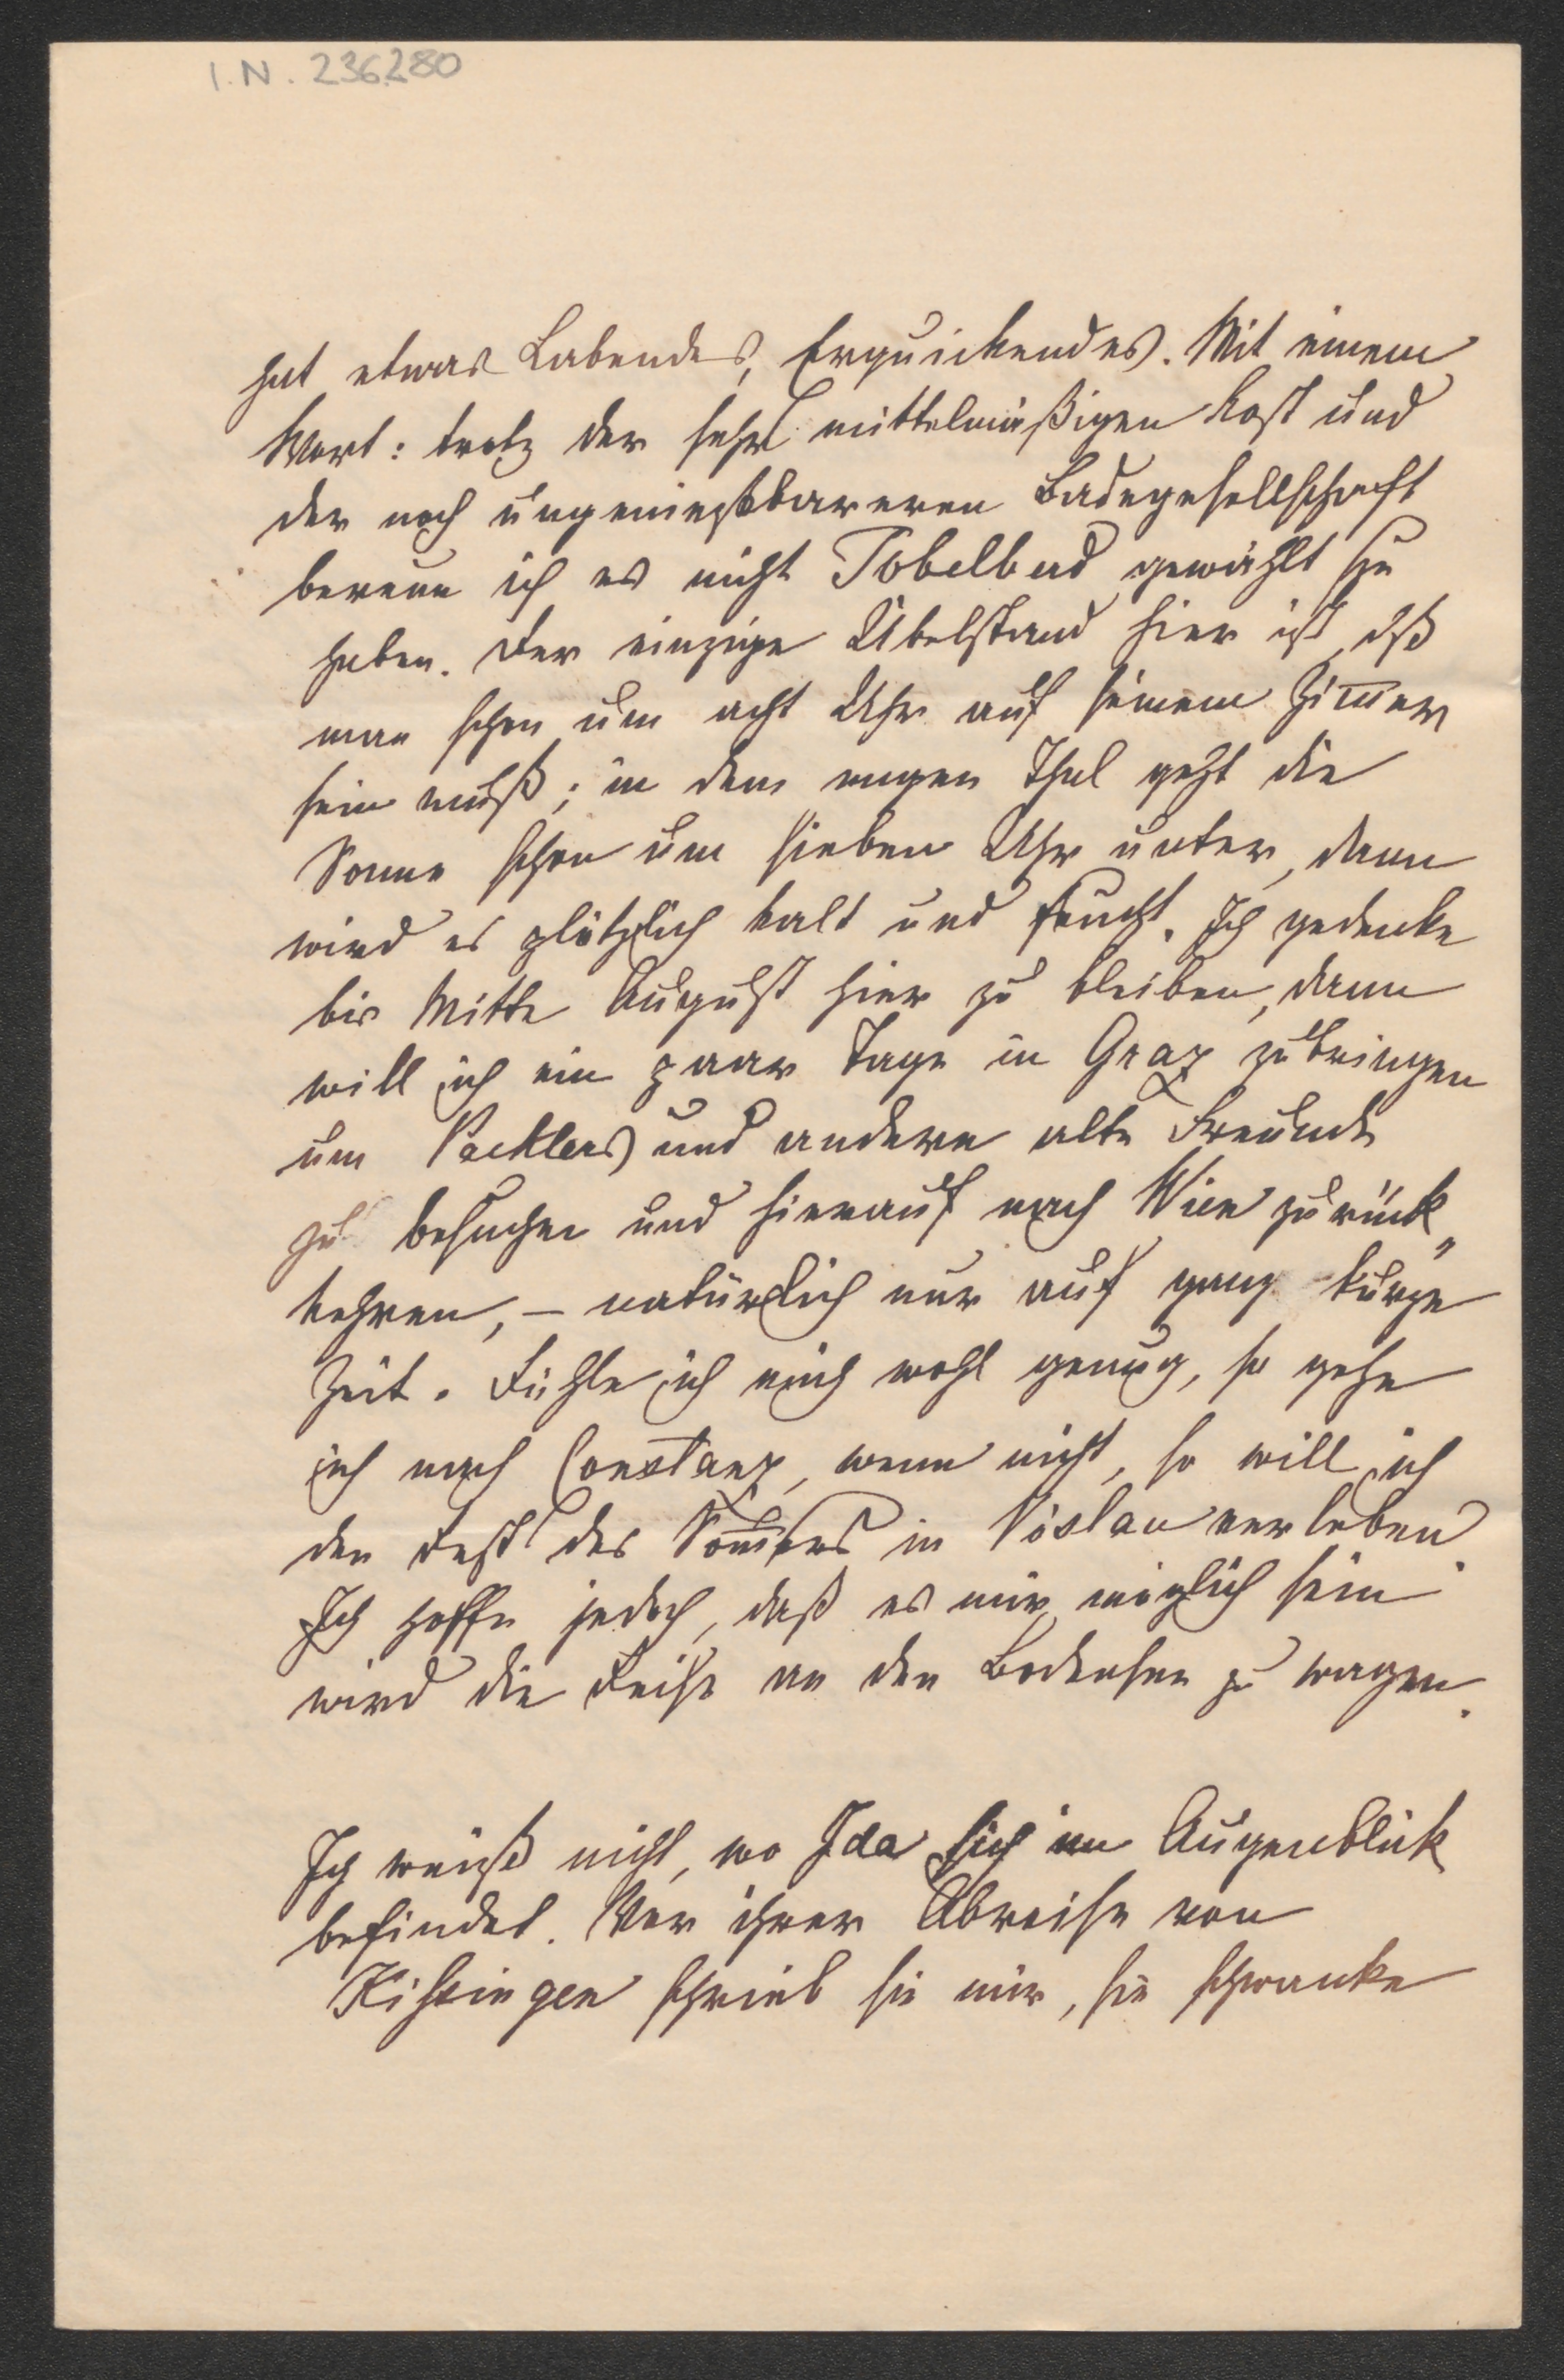 I.N. 236.280
hat etwas Labendes, Erquickendes. Mit einem
Wort: trotz der sehr mittelmäßigen Kost und
der noch ungenießbareren Badegesellschaft
bereue ich es nicht Tobelbad gewählt zu
haben. Der einzige Übelstand hier ist, dß
man schon um acht Uhr auf seinem Zim̅er
sein muß; in dem engen Thal geht die
Sonne schon um sieben Uhr unter, dann
wird es plötzlich kalt und feucht. Ich gedenke
bis Mitte August hier zu bleiben, dann
will ich ein paar Tage in Graz zubringen
um und andere alte Freunde
zu besuchen und hierauf nach Wien zurück„
kehren, – natürlich nur auf ganz kurze
Zeit. Fühle ich mich wohl genug, so gehe
ich nach Constanz, wenn nicht, so will ich
den Rest des Som̅ers in Vöslau verleben.
Ich hoffe jedoch, daß es mir möglich sein
wird die Reise an den Bodensee zu wagen.
Ich weiß nicht, wo Ida sich im Augenblick
befindet. Vor ihrer Abreise von
Kissingen schrieb sie mir, sie schwanke